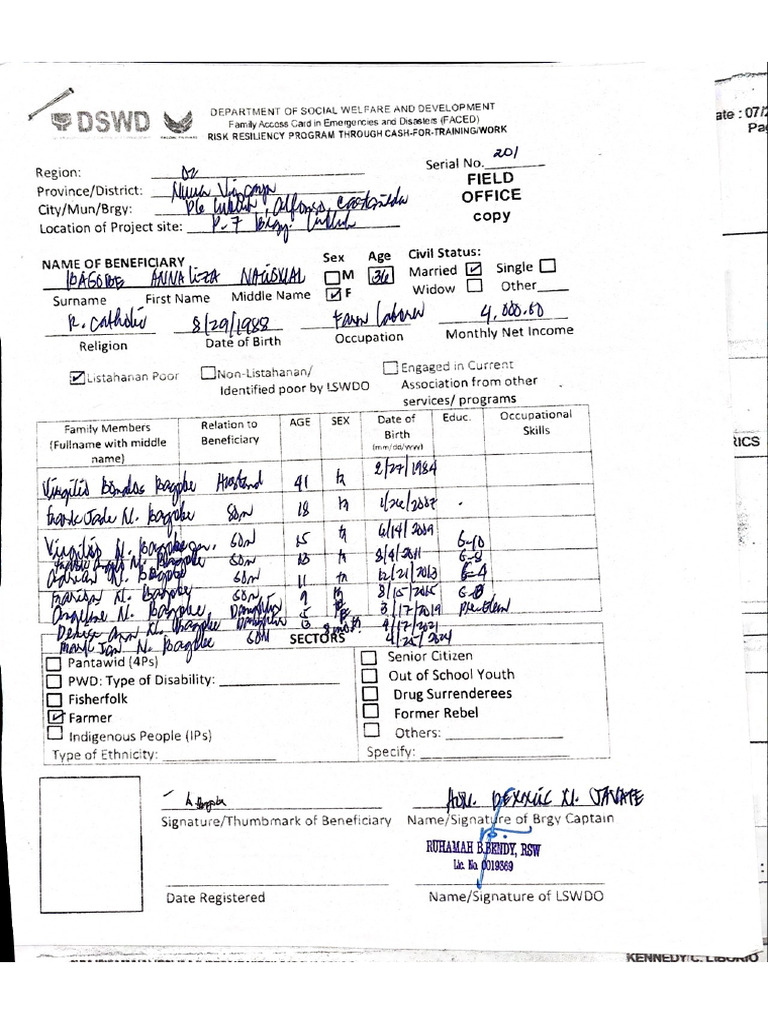 DSWD
DEPARTMENT OF SOCIAL WELFARE AND DEVELOPMENT
Family Access Card in Emergencies and Disasters (FACED)
RISK RESILIENCY PROGRAM THROUGH CASH-FOR-TRAINING/WORK
Serial No. 201
FIELD
OFFICE
copy
Region: 02
Province/District: Nueva Vizcaya
City/Mun/Brgy: P6 , Alfonso Castañeda
Location of Project site: P.7 Brgy.
NAME OF BENEFICIARY Sex Age Civil Status:
ANNALIZA NACIONAL M 36 Married Single
Surname First Name Middle Name F Widow Other
R. Catholic 8/29/1988 Farm Laborer 4,000.00
Religion Date of Birth Occupation Monthly Net Income
Listahanan Poor
Non-Listahanan/
Identified poor by LSWDO
Engaged in Current
Association from other
services/ programs
Family Members
(Fullname with middle
name)
Relation to
Beneficiary
AGE SEX
Date of
Birth
(mm/dd/ww)
Educ.
Occupational
Skills
Virgilio Husband 41 2/27/1984
Jade N. Son 18
Virgilio N. Son 15 6/14/2009 G-10
Son 13 8/4/2011 G-8
Adrian N. Son 11 12/21/2013 G-4
N. Son 9 8/15/2015
Angeline N. Daughter 5 3/17/2019
Ann N. Daughter 4/17/2021
Mark Jan N. Son 4/25/2024
SECTORS
Pantawid (4Ps)
PWD: Type of Disability:
Fisherfolk
Farmer
Indigenous People (IPs)
Type of Ethnicity:
Senior Citizen
Out of School Youth
Drug Surrenderees
Former Rebel
Others:
Specify:
Signature/Thumbmark of Beneficiary
Hon.
Name/Signature of Brgy Captain
RUHAMAH B. BENDY, RSW
Lic. No. 0019369
Date Registered
Name/Signature of LSWDO
ate : 07/2
Pag
RICS
KENNEDY C. LIBORIO